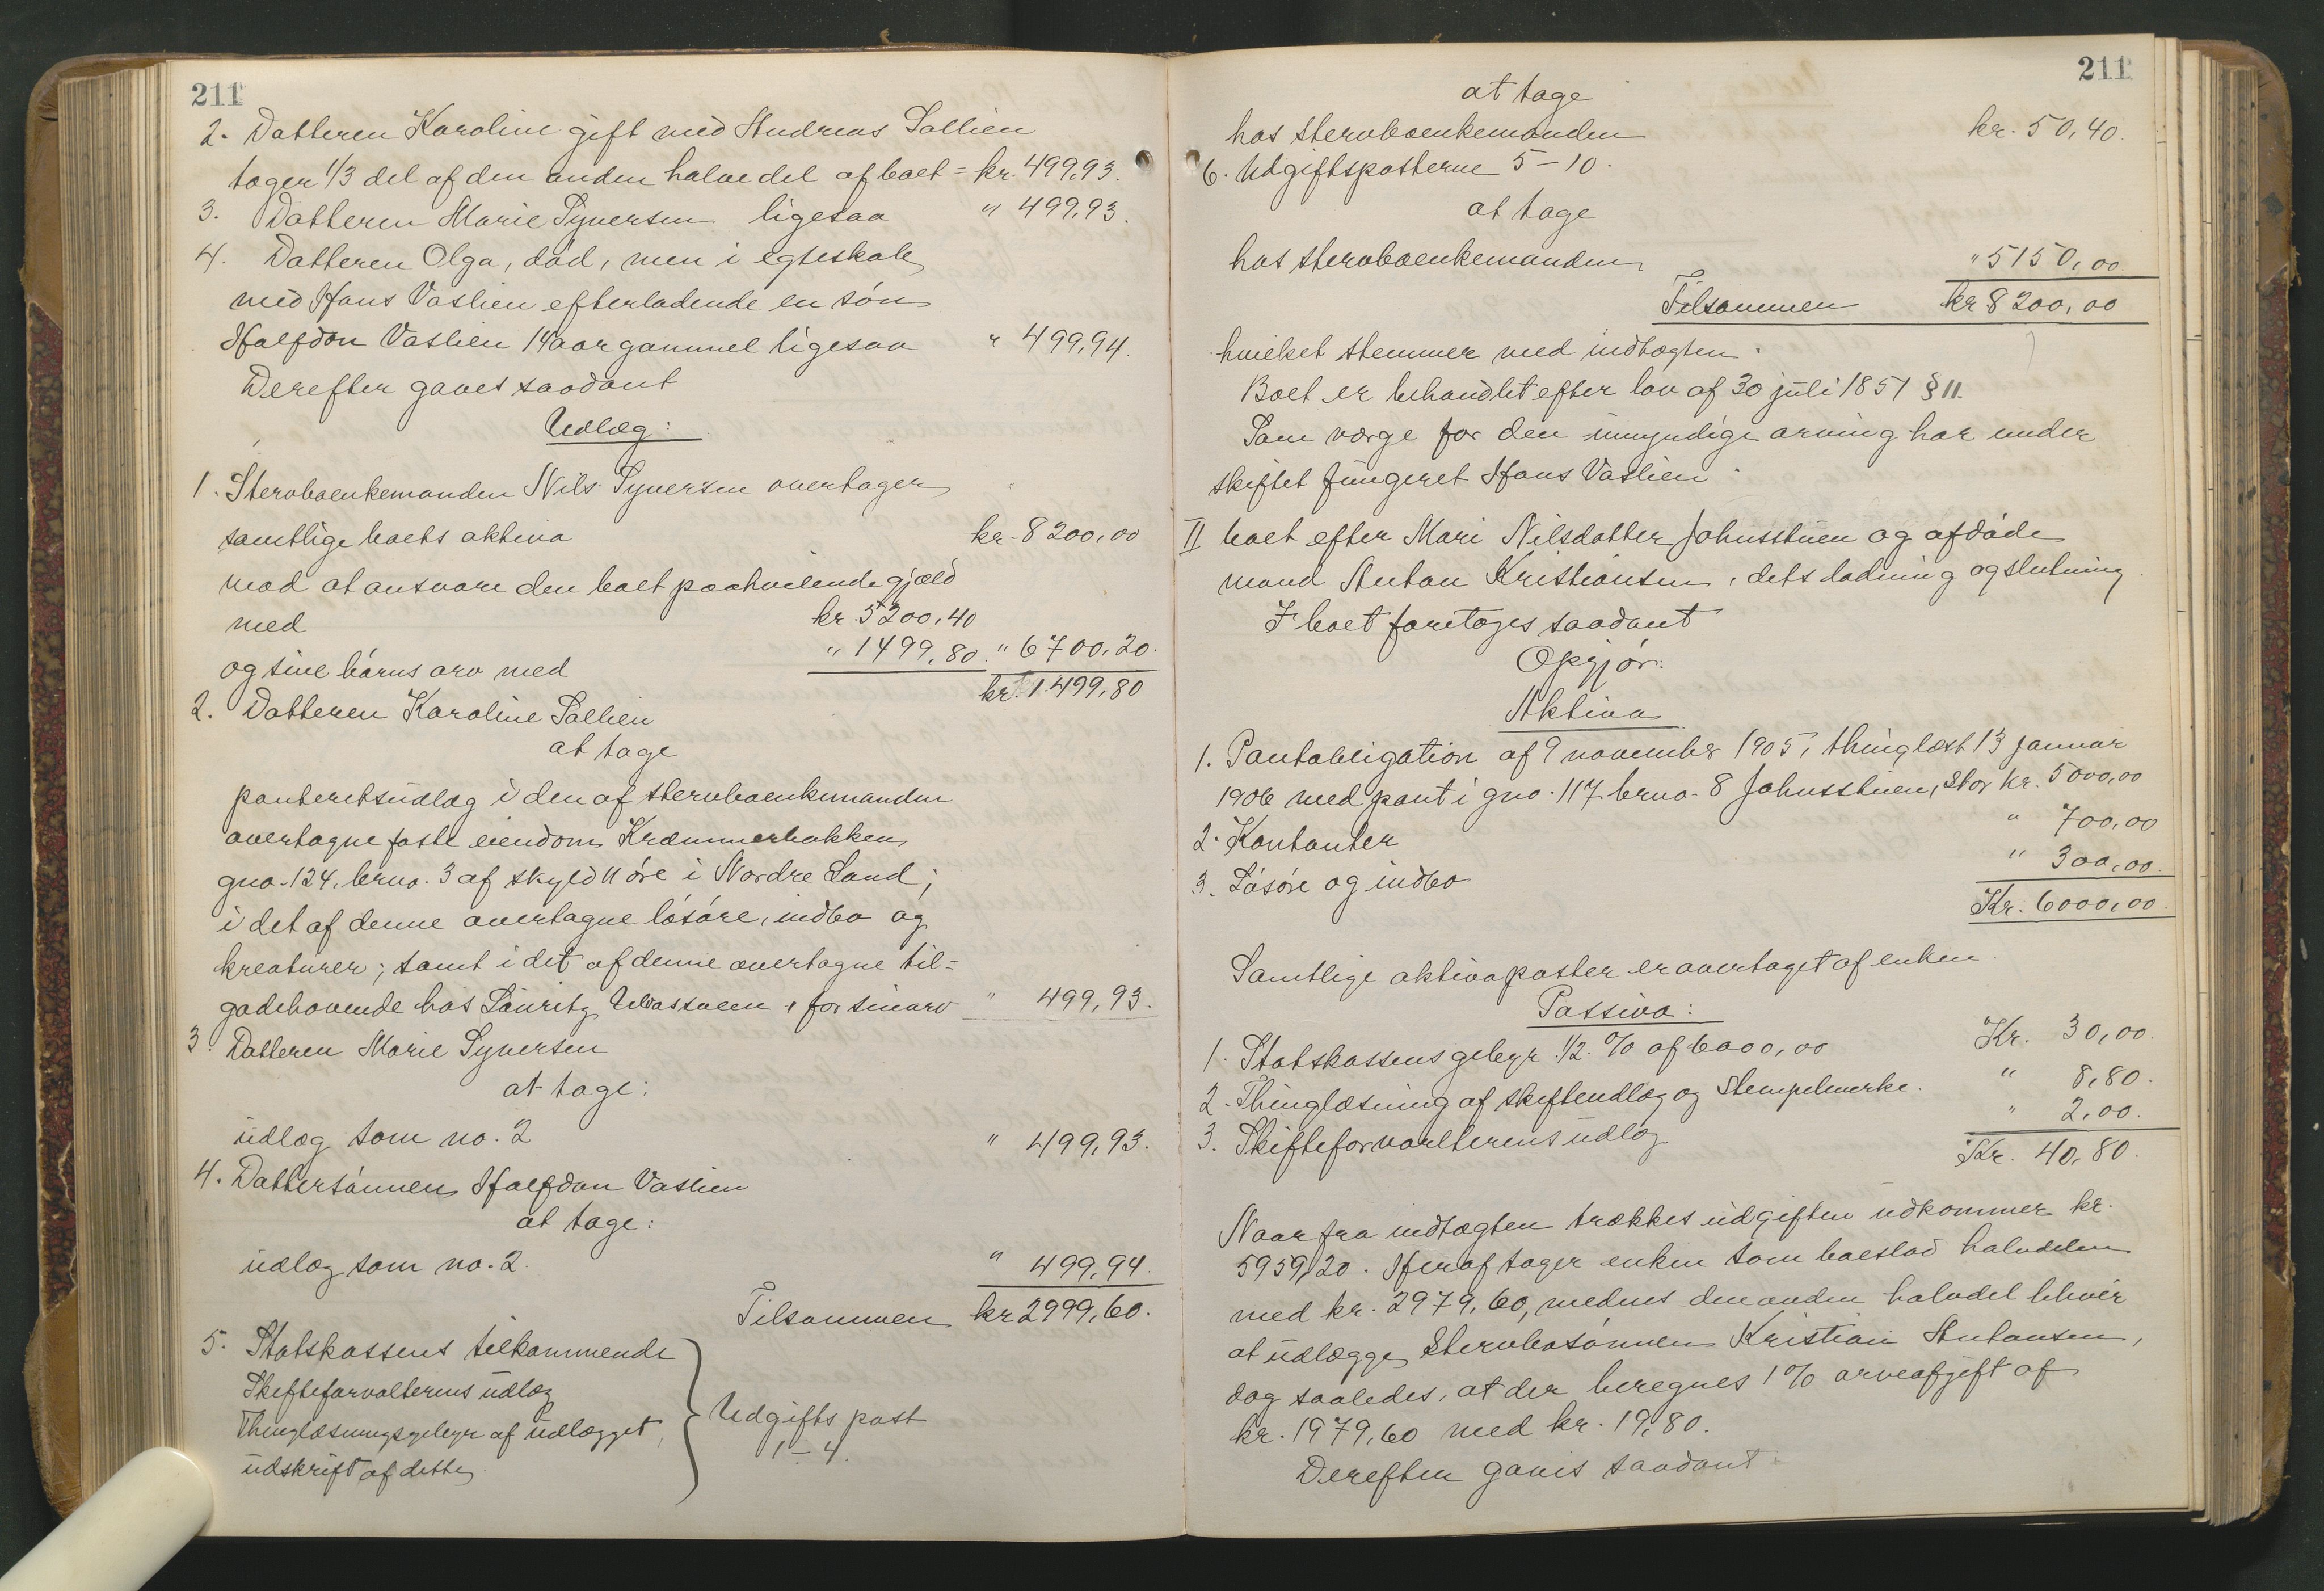 211
2. Datteren Karoline gift med Andreas Sallien
tager 1/3 del af den anden halvedel af boet = kr. 499,93.
3. Datteren Marie Syversen ligesaa " 499,93.
4. Datteren Olga, död, men i egteskab
med Hans Vaslien efterladende en sön
Halfdan Vaslien 14 aar gammel ligesaa " 499,94.
Derefter gaves saadant
Udlæg:
1. Stervboenkemanden Nils Syversen overtager
samtlige boets aktiva kr. 8200,00
mod at ansvare den boet paahvilende gjæld
med kr. 5200,40
og sine börns arv med " 1499,80. " 6700,20.
kr. 1499,80
2. Datteren Karoline Sallien
at tage
panteretsudlæg i den af stervboenkemanden
overtagne faste eiendom Kræmmerbakken
gno. 124, brno. 3 af skyld 11 öre i Nordre Land;
i det af denne overtagne lösöre, indbo og
kreaturer; samt i det af denne overtagne til=
godehavende hos Lauritz, for sin arv " 499,93.
3. Datteren Marie Syversen
at tage:
udlæg som no. 2 " 499,93.
4. Dattersönnen Halfdan Vaslien
at tage:
udlæg som no. 2. " 499,94.
Tilsammen kr 2999,60.
5. Statskassens tilkommende
Skifteforvalterens udlæg
Thinglæsningsgebyr af udlægget,
udskrift af dette
Udgifts post
1 – 4.
211
at tage
hos stervboenkemanden kr. 50,40.
6. Udgiftsposterne 5 – 10.
at tage
hos stervboenkemanden " 5150,00
Tilsammen kr 8200,00
hvilket stemmer med indtægten.
Boet er behandlet efter lov af 30 juli 1851 § 11.
Som værge for den umyndige arving har under
skiftet fungeret Hans Vaslien.
II boet efter Mari Nilsdatter Johnsstuen og afdöde
mand Anton Kristiansen, dets ladning og slutning.
I boet foretoges saadant
Opgjör:
Aktiva
1. Pantobligation af 9 november 1905, thinglæst 13 januar
1906 med pant i gno. 117 brno. 8 Johnsstuen, stor kr. 5000,00
2. Kontanter " 700,00
3. Lösöre og indbo " 300,00.
Kr. 6000,00.
Samtlige aktivaposter er overtaget af enken.
Passiva:
1. Statskassens gebyr 1/2 % af 6000,00 Kr. 30,00.
2. Thinglæsning af skifteudlæg og Stempelmerke. " 8,80.
3. Skifteforvalterens udlæg " 2,00.
Kr. 40,80.
Naar fra indtægten trækkes udgiften udkommer kr.
5959,20. Heraf tager enken som boeslod halvdelen
med kr. 2979,60, medens den anden halvdel bliver
at udlægge Stervbosönnen Kristian Antonsen,
dog saaledes, at der beregnes 1 % arveafgift af
kr. 1979,60 med kr. 19,80.
Derefter gaves saadant